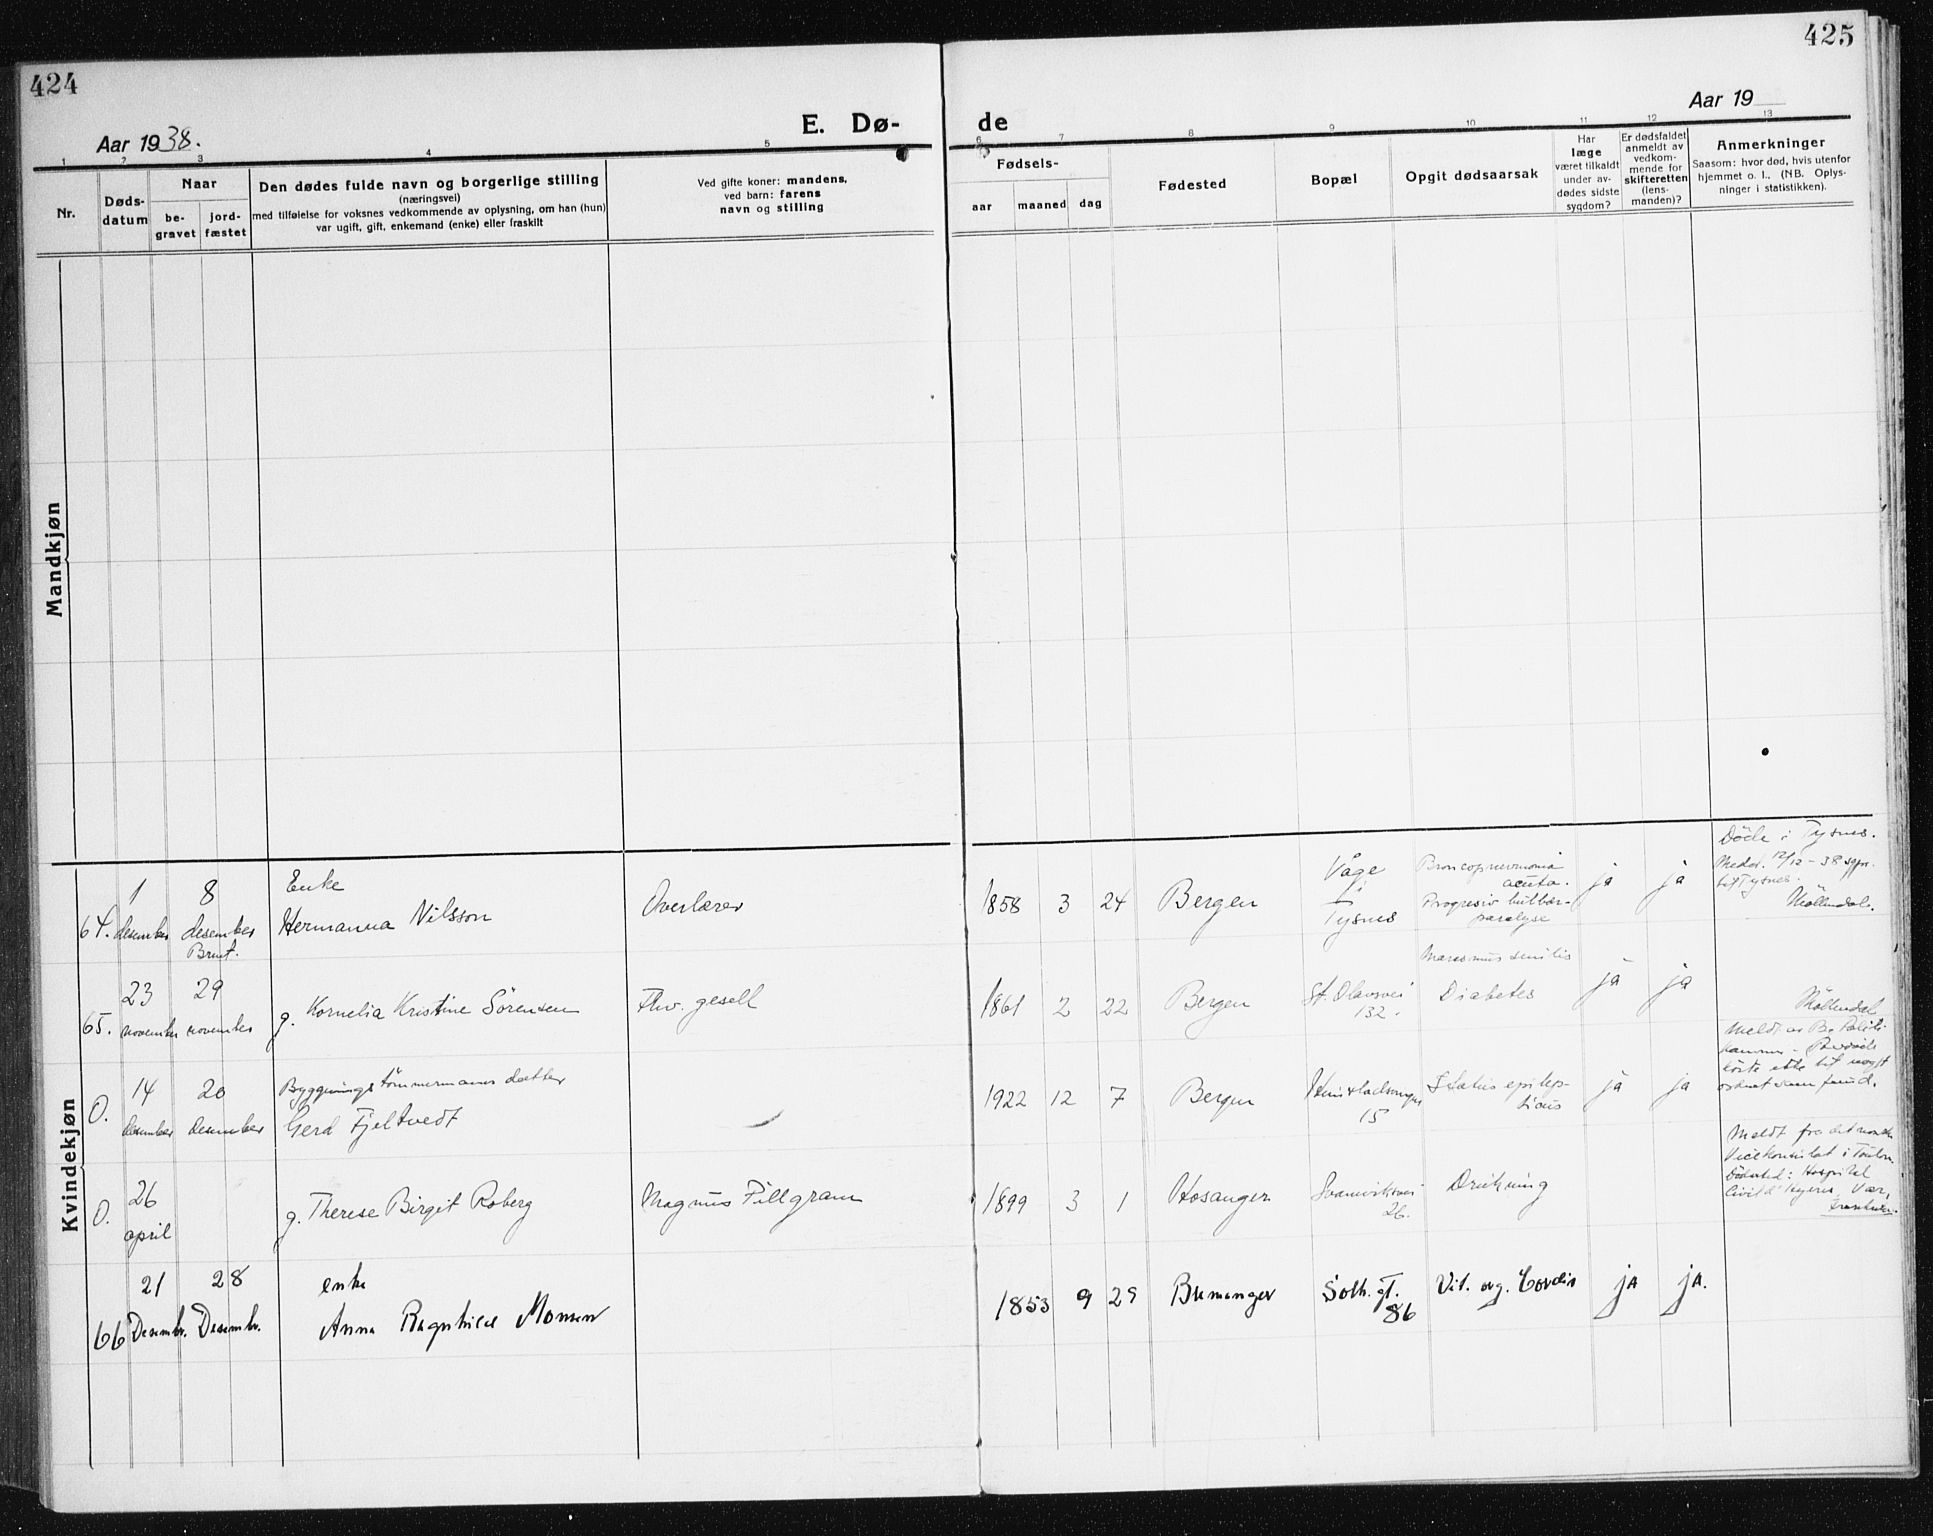 424
Aar 1938.
E. Dø-
1
2
3
4
5
Nr.
Døds-
datum
Naar
be-
gravet
jord-
fæstet
Den dødes fulde navn og borgerlige stilling
(næringsvei)
med tilføielse for voksnes vedkommende av oplysning, om han (hun)
var ugift, gift, enkemand (enke) eller fraskilt
Ved gifte koner: mandens,
ved barn: farens
navn og stilling
425
Aar 19
de
6
7
8
9
10
11
12
13
Fødsels-
aar
maaned
dag
Fødested
Bopæl
Opgit dødsaarsak
Har
læge
været tilkaldt
under av-
dødes sidste
sygdom?
Er dødsfaldet
anmeldt av
vedkom-
mende for
skifteretten
(lens-
manden)?
Anmerkninger
Saasom: hvor død, hvis utenfor
hjemmet o. l., (NB. Oplys-
ninger i statistikken).
Mandkjøn
Kvindekjøn
64.
1
desember
8
desember
Brent.
Enke
Hermanna Nilsson
Overlærer
1858 3 24
Bergen
Våge
i
Tysnes
Broncopnevmonia
acuta.
Progresiv bulbær-
paralyse
ja
ja
Döde i Tysnes.
Medd. 12/12-38 sgpr.
til Tysnes.
Möllendal.
65.
23
november
29
november
g. Kornelia Kristine Sörensen
Fhv. gesell
1861 2 22
Bergen
St. Olavsvei
132.
Marasmus senilis
Diabetes
ja
ja
Möllendal
0.
14
desember
20
desember
Byggningstömmermanns datter
Gerd Fjeltvedt
1922 12 7
Bergen
15
Status epilep-
ticus
ja
ja
Meldt av Bg. Politi-
kammer -
ikke
0.
26
april
g. Therese Birgit Roberg
Magnus Fillgram
1899 3 1
Hosanger
26.
Drukning
Meldt fra det norske
Vicekonsulat i Toulon
Dödssted: Hospital
Civil d'Hyeres, Var,
Frankrike.
66
21
Desembr.
28
Desembr.
enke
Anna Ragnhild Monsen
1853 9 29
Bremanger
Solh. gt.
86
Vit. org. Cordis
ja
ja.